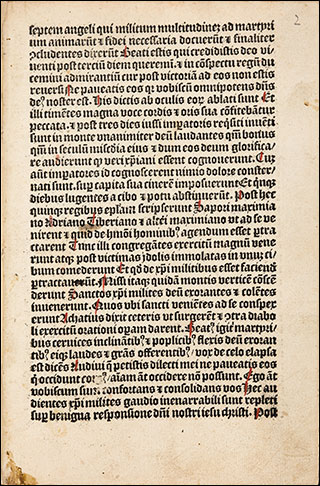 2
septem angeli qui militum multitudinez ad martyri
um animarūt & fidei necessaria docuerūt & finaliter
ꝯcludentes dixerūt Beati estis qui credidistis deo vi-
uenti post terciū diem queremī & in cōspectu regū du
cemini admirantiū cur post victoriā ad eos non estis
reuersi Ne paueatis eos qꝛ vobiscū omnipotens dn̄s
deꝰ noster est. His dictis ab oculis eoꝝ ablati sunt Et
illi timētes magna voce cordis & oris sua cōfitebātur
peccata. & post tres dies iussi impatoris reqsiti inuēti
sunt in monte vnanimiter deū laudantes qm̄ bonus
qm̄ in seculū misc̄dia eius & dum eos deum glorifica/
re audierunt qꝫ veri xp̄iani essent cognouerunt. Cuz
aūt impatores id cognoscerent nimio dolore conster-
nati sunt. sup capita sua cinerē imposuerunt Et qinqꝫ
diebus lugentes a cibo & potu abstinuerūt. Post hec
quinqꝫ regibus ep̄lam scripserunt Sapori maximia
no Adriano Tiberiano & alteri maximiano vt ad se ve
nirent & quid de hm̄ōi hominibꝰ agendum esset ptra
ctarent Tunc illi congregātes exercitū magnū vene
runt atqꝫ post victimas ydolis immolatas in vnuz ci
bum comederunt Et qd de xp̄i militibus esset faciend
ptractauerūt. Missi itaqꝫ quidā montis verticē cōscē
derunt Sanctos xp̄i milites deū exorantes & colētes
inuenerunt. Quos vbi sancti venietes ad se conspex
erunt Achatius dixit ceteris vt surgerēt & ꝯtra diabo
li exercitū orationi opam darent. Beatꝭ igit martyri
bus ceruices inclinātibꝰ & poplicibꝰ flexis deū exoran
tibꝰ eiqꝫ laudes & grās offerentibꝰ / vox de celo elapsa
est dicēs Audiui qd petistis dilecti mei ne paueatis eos
q occidunt corꝰ / aīam āt occidere nō possunt. Ego āt
vobiscum sum confortans & consolidans vos Hec au
dientes xp̄i milites gaudio inenarrabili sunt repleti
sup benigna responsione dn̄i nostri iesu christi. Post